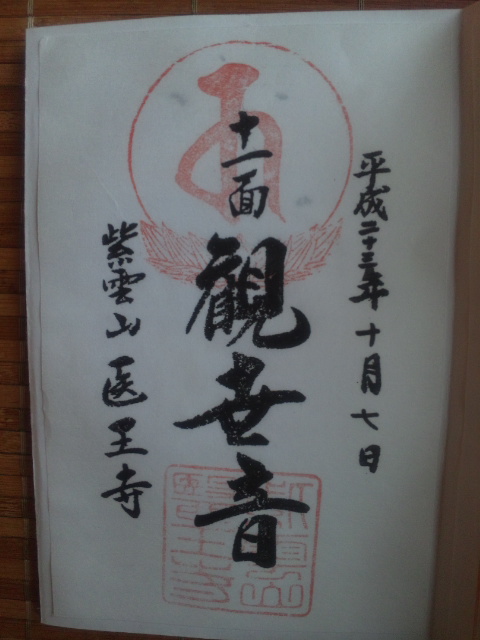 平成二十三年十月七日
十一面
観世音
紫雲山医王寺